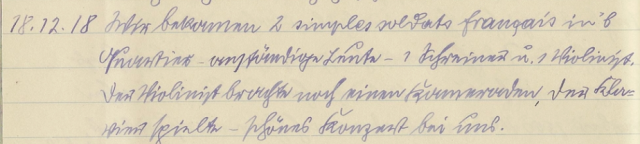 18.12.18 Wir bekamen 2 simples soldats français in's
Quartier – anständige Leute – 1 Schreiner u. 1 Violinist.
Der Violinist brachte noch einen Kameraden, der Kla-
vier spielte – schönes Konzert bei uns.